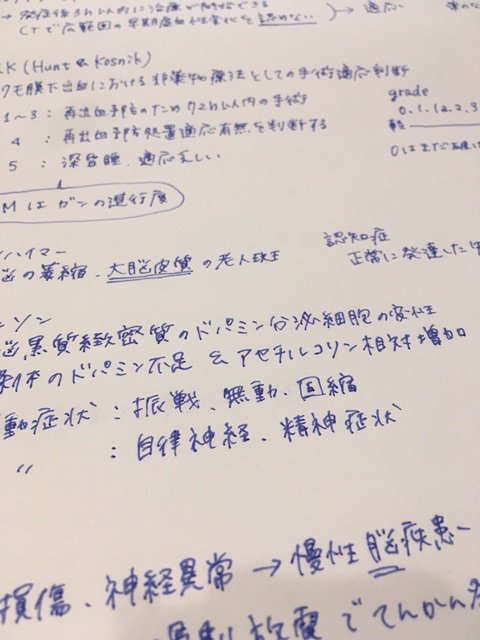 発症後3h以内に治療が開始できる → 適応
CTで広範囲の早期虚血性変化を認めない
K (Hunt & Kosnik)
クモ膜下出血における非薬物療法としての手術適応判断
grade
1~3 : 再出血予防のため72h以内の手術
0.1.12.2.3
4 : 再出血予防処置適応有無を判断する
軽
5 : 深昏睡. 適応乏しい
0はまだ
Mはガンの進行度
ハイマー
認知症
の萎縮. 大脳皮質の老人斑
正常に発達した
ンソン
黒質緻密質のドパミン分泌細胞の変性
条体のドパミン不足 & アセチルコリン相対増加
動症状 : 振戦、無動、固縮
〃 : 自律神経、精神症状
損傷、神経異常 → 慢性脳疾患
放電でてんかん